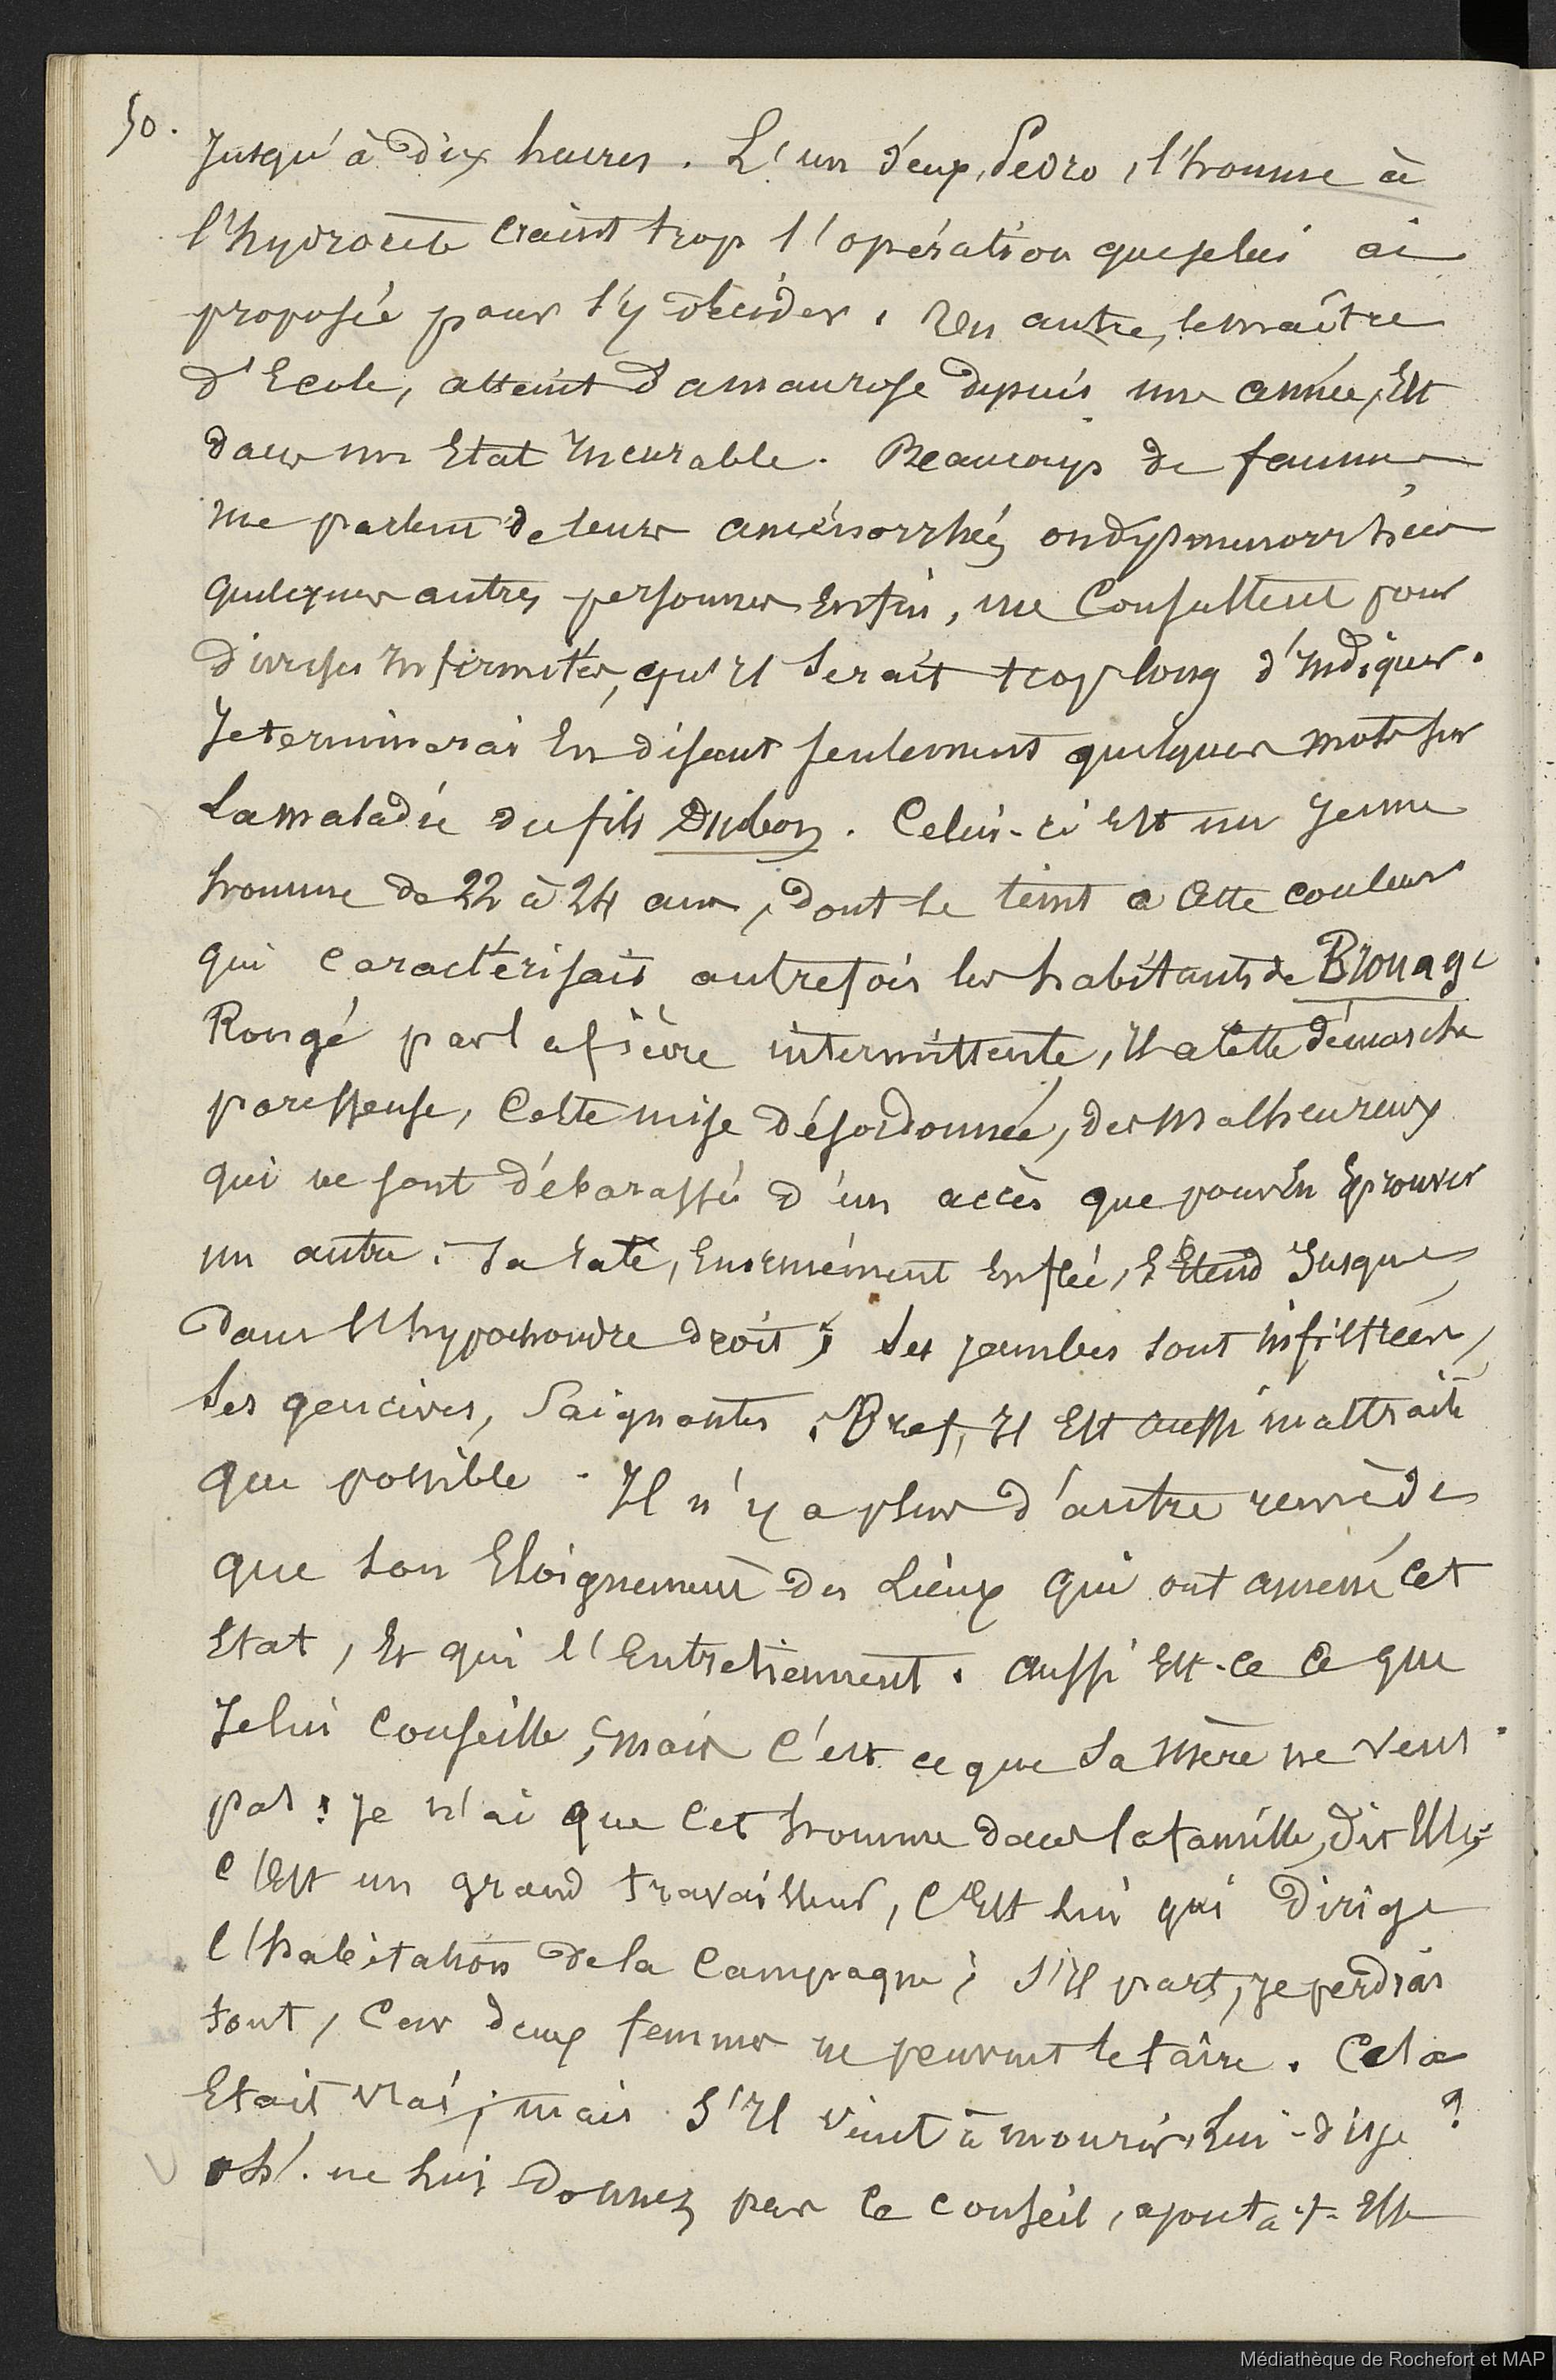 50.
Jusqu'à dix heures. L'un d'eux, Pedro, l'homme à
l'hydrocèle craint trop l'opération que je lui ai
proposée pour s'y décider. Un autre, le maître
d'Ecole, atteint d'amaurose depuis une année, Est
dans un Etat Incurable. Beaucoup de femmes
me parlent de leurs aménorrhées ou dysmenorrhées
quelques autres personnes Enfin, me Consultent pour
diverses Infirmités, qu'Il serait trop long d'Indiquer.
Je terminerai En disant seulement quelques mots sur
La maladie du fils Dubon. Celui-ci Est un Jeune
homme de 22 à 24 ans, dont le teint a cette couleur
qui caractérisait autrefois les habitants de Brouage
Rongé par la fièvre intermittente, Il a cette démarche
paresseuse, Cette mise désordonnée, des Malheureux
qui ne sont débarassés d'un accès que pour En Eprouver
un autre. Sa rate, Enormément Enflée, s'Etend Jusques
dans l'hypochondre droit; Ses jambes sont infiltrées,
Ses gencives, Saignantes. Bref, Il Est aussi maltraité
que possible. Il n'y a plus d'autre remède
que son Eloignement des Lieux qui ont amené Cet
Etat, Et qui l'Entretiennent. Aussi Est-ce Ce que
Je lui Conseille; Mais C'est ce que Sa Mère ne veut
pas: Je n'ai que Cet homme dans la famille, dit Elle,
C'Est un grand travailleur, C'Est Lui qui Dirige
l'habitation de la Campagne; S'Il part, je perdrai
tout, Car deux femmes ne peuvent le faire. Cela
Etait vrai; mais S'Il vient à mourir, Lui-dis je?
oh! ne Lui Donnez pas Ce Conseil, ajouta-t-Elle
Médiathèque de Rochefort et MAP